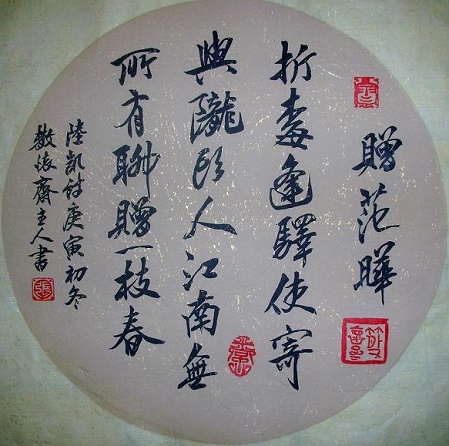 贈范曄
折梅逢驛使寄
與隴頭人江南無
所有聊贈一枝春
陸凱詩庚寅初冬
散懷齋主人書